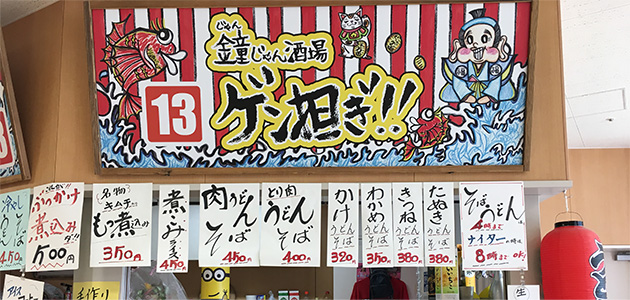 じゃん
鐘童じゃん酒場
13
ゲン担ぎ!!
ぶっかけ
煮込み
500円
名物
キムチ
もつ煮込み
350円
煮込み
ライス
450円
肉うどん
そば
450円
とり肉
うどん
そば
400円
かけ
うどん
そば
320円
わかめ
うどん
そば
350円
きつね
うどん
そば
380円
たぬき
うどん
そば
380円
そば
うどん
4時まで
ナイターの時は
8時までOK
手作り
生